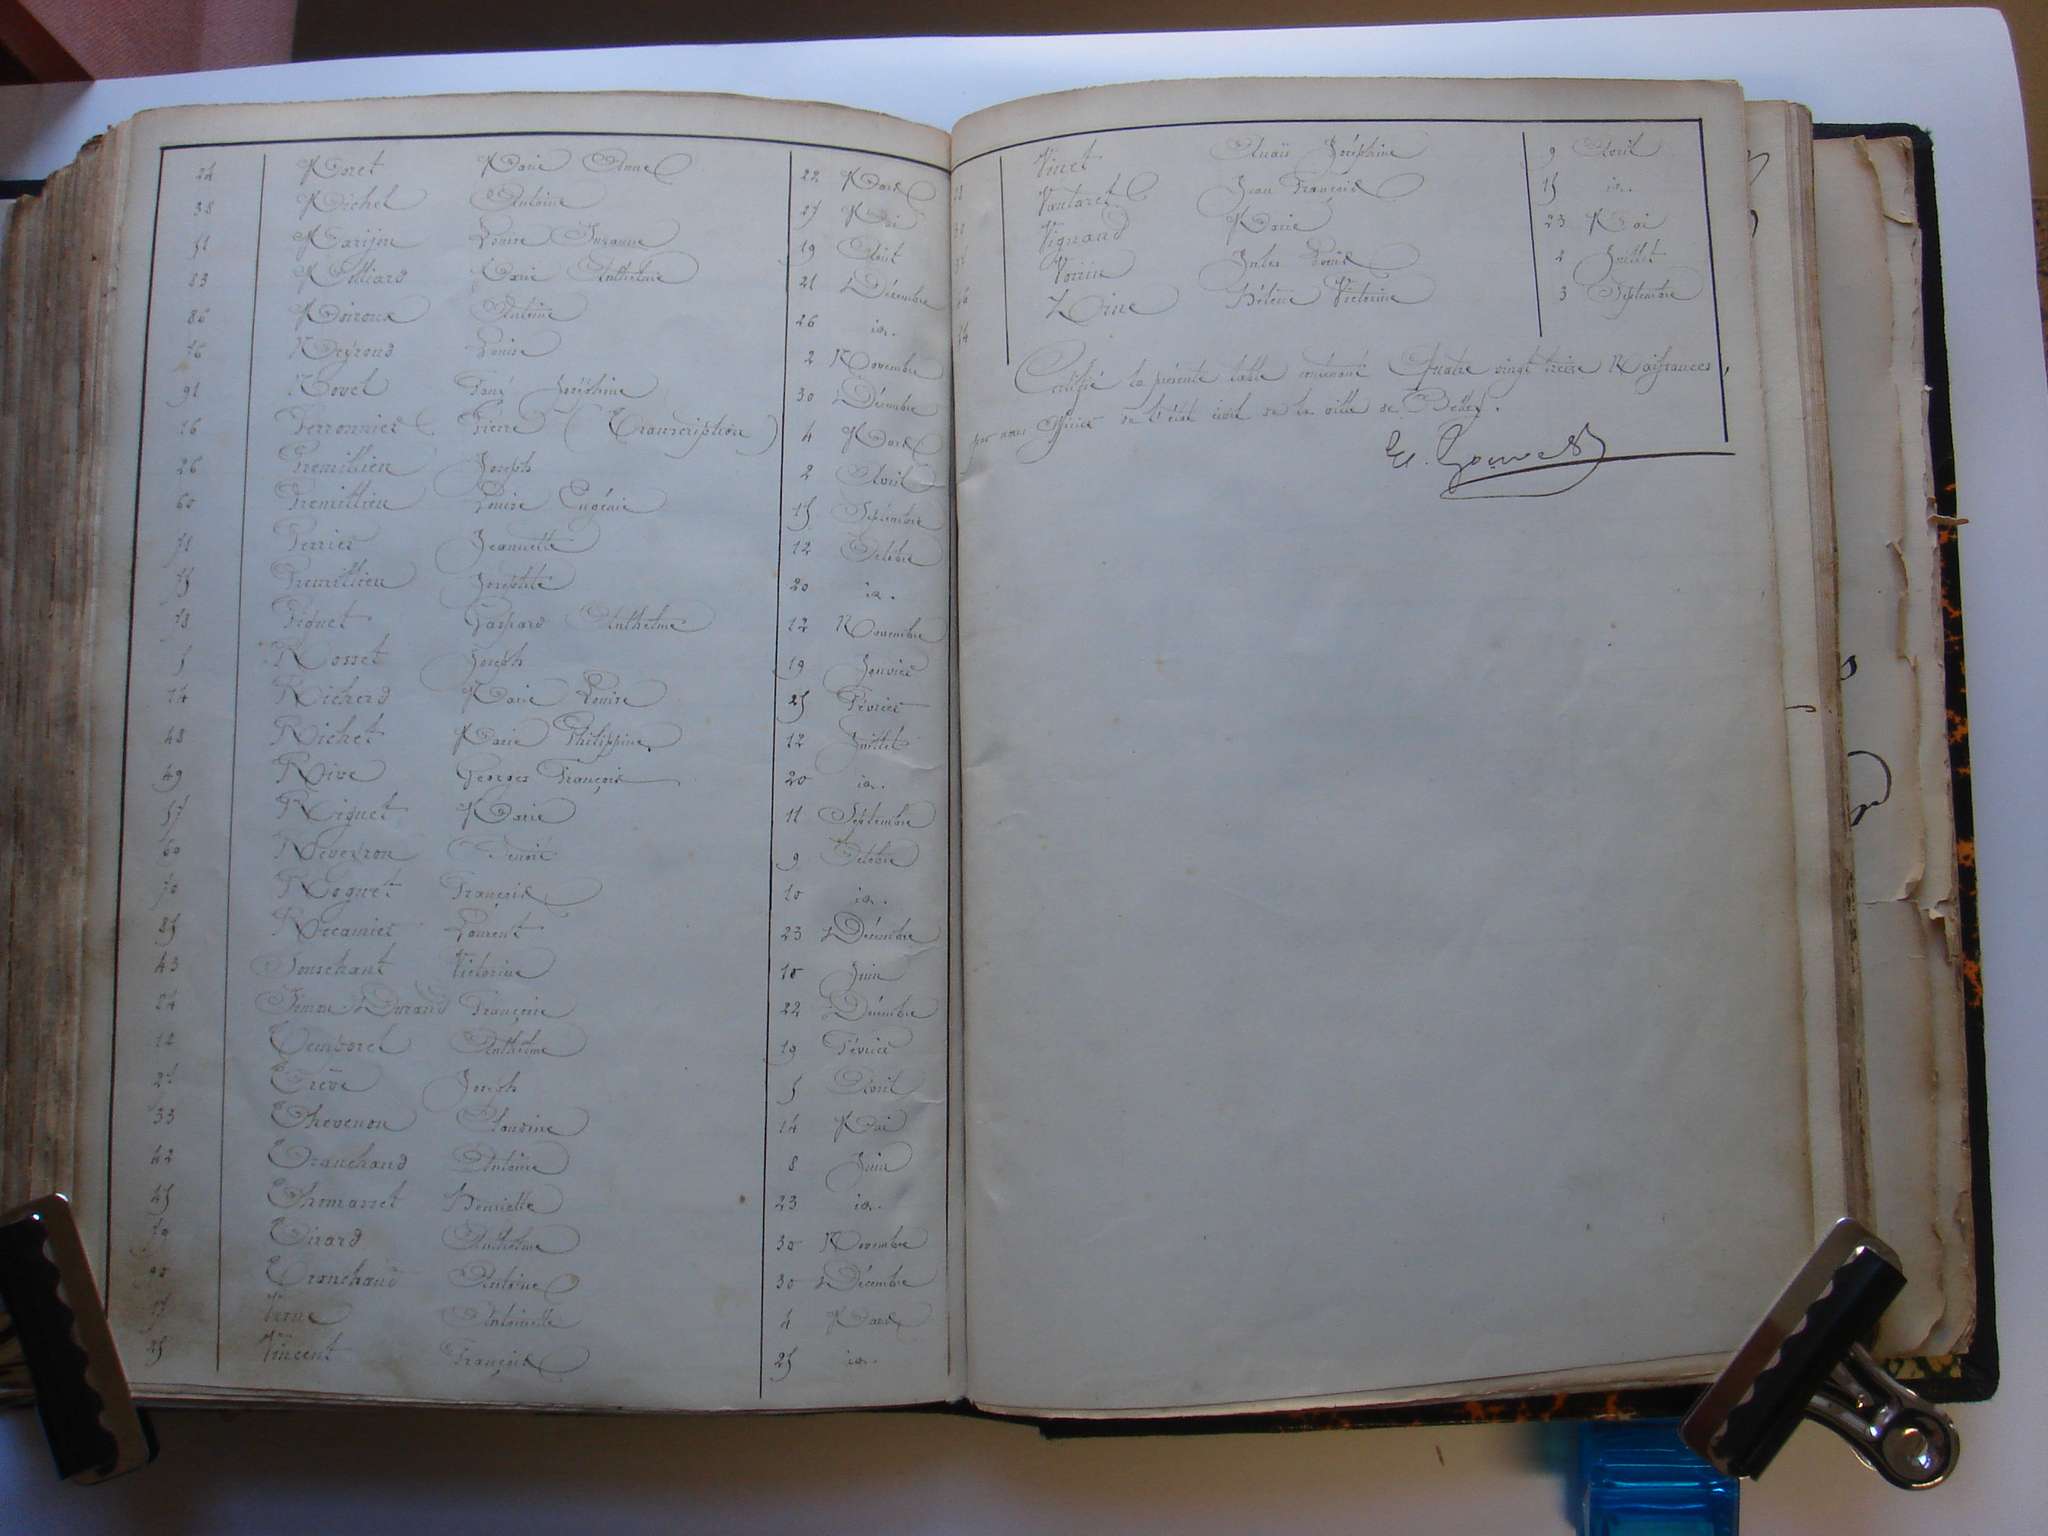 24 Moret Marie Anne 22 Mars
38 Michel Antoine 27 Mai
51 Marijon Louise Suzanne 19 Août
83 Milliard Marie Anthelme 21 Décembre
86 Moiroux Antoine 26 id.
76 Neyroud Louise 2 Novembre
91 Novel Fany Joséphine 30 Décembre
16 Perronnier Pierre (Transcription) 4 Mars
26 Premillieu Joseph 2 Avril
60 Premillieu Louise Eugénie 15 Septembre
71 Perrier Jeannette 12 Octobre
75 Premillieu Josephte 20 id.
78 Piquet Gaspard Anthelme 12 Novembre
5 Rosset Joseph 19 Janvier
14 Richerd Marie Louise 25 Février
48 Richet Marie Philippine 12 Juillet
49 Rive Georges François 20 id.
57 Riguet Marie 11 Septembre
Reveyron Benoit 9 Octobre
70 Roguet François 10 id.
85 Récamier Laurent 23 Décembre
43 Souschant Victorine 10 Juin
Simon Durand Françoise 22 Décembre
12 Tendoret Anthelme 19 Février
27 Trêve Joseph 5 Avril
33 Thevenon Claudine 14 Mai
42 Tranchand Antoine 8 Juin
45 Thomasset Henriette 23 id.
Tirard Anthelme 30 Novembre
90 Tronchand Antoine 30 Décembre
17 Verne Antoinette 4 Mars
25 Vincent François 25 id.
Vinet Anaïs Joséphine 9 Avril
Vautaret Jean François 15 id.
Vignand Marie 23 Mai
Voisin Jules Louis 2 Juillet
Zoine Hélène Victorine 3 Septembre
Certifié la présente table contenant Quatre vingt treize Naissances,
par nous Officier de l'état civil de la ville de Belley.